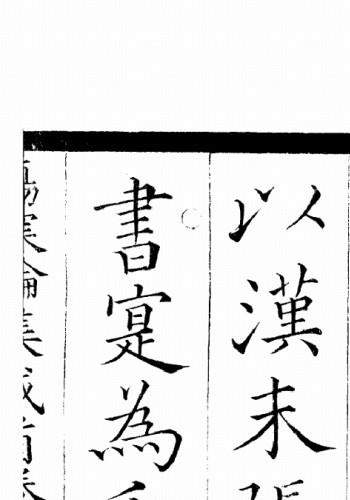 以漢末張
書寔為
傷寒論集成首卷